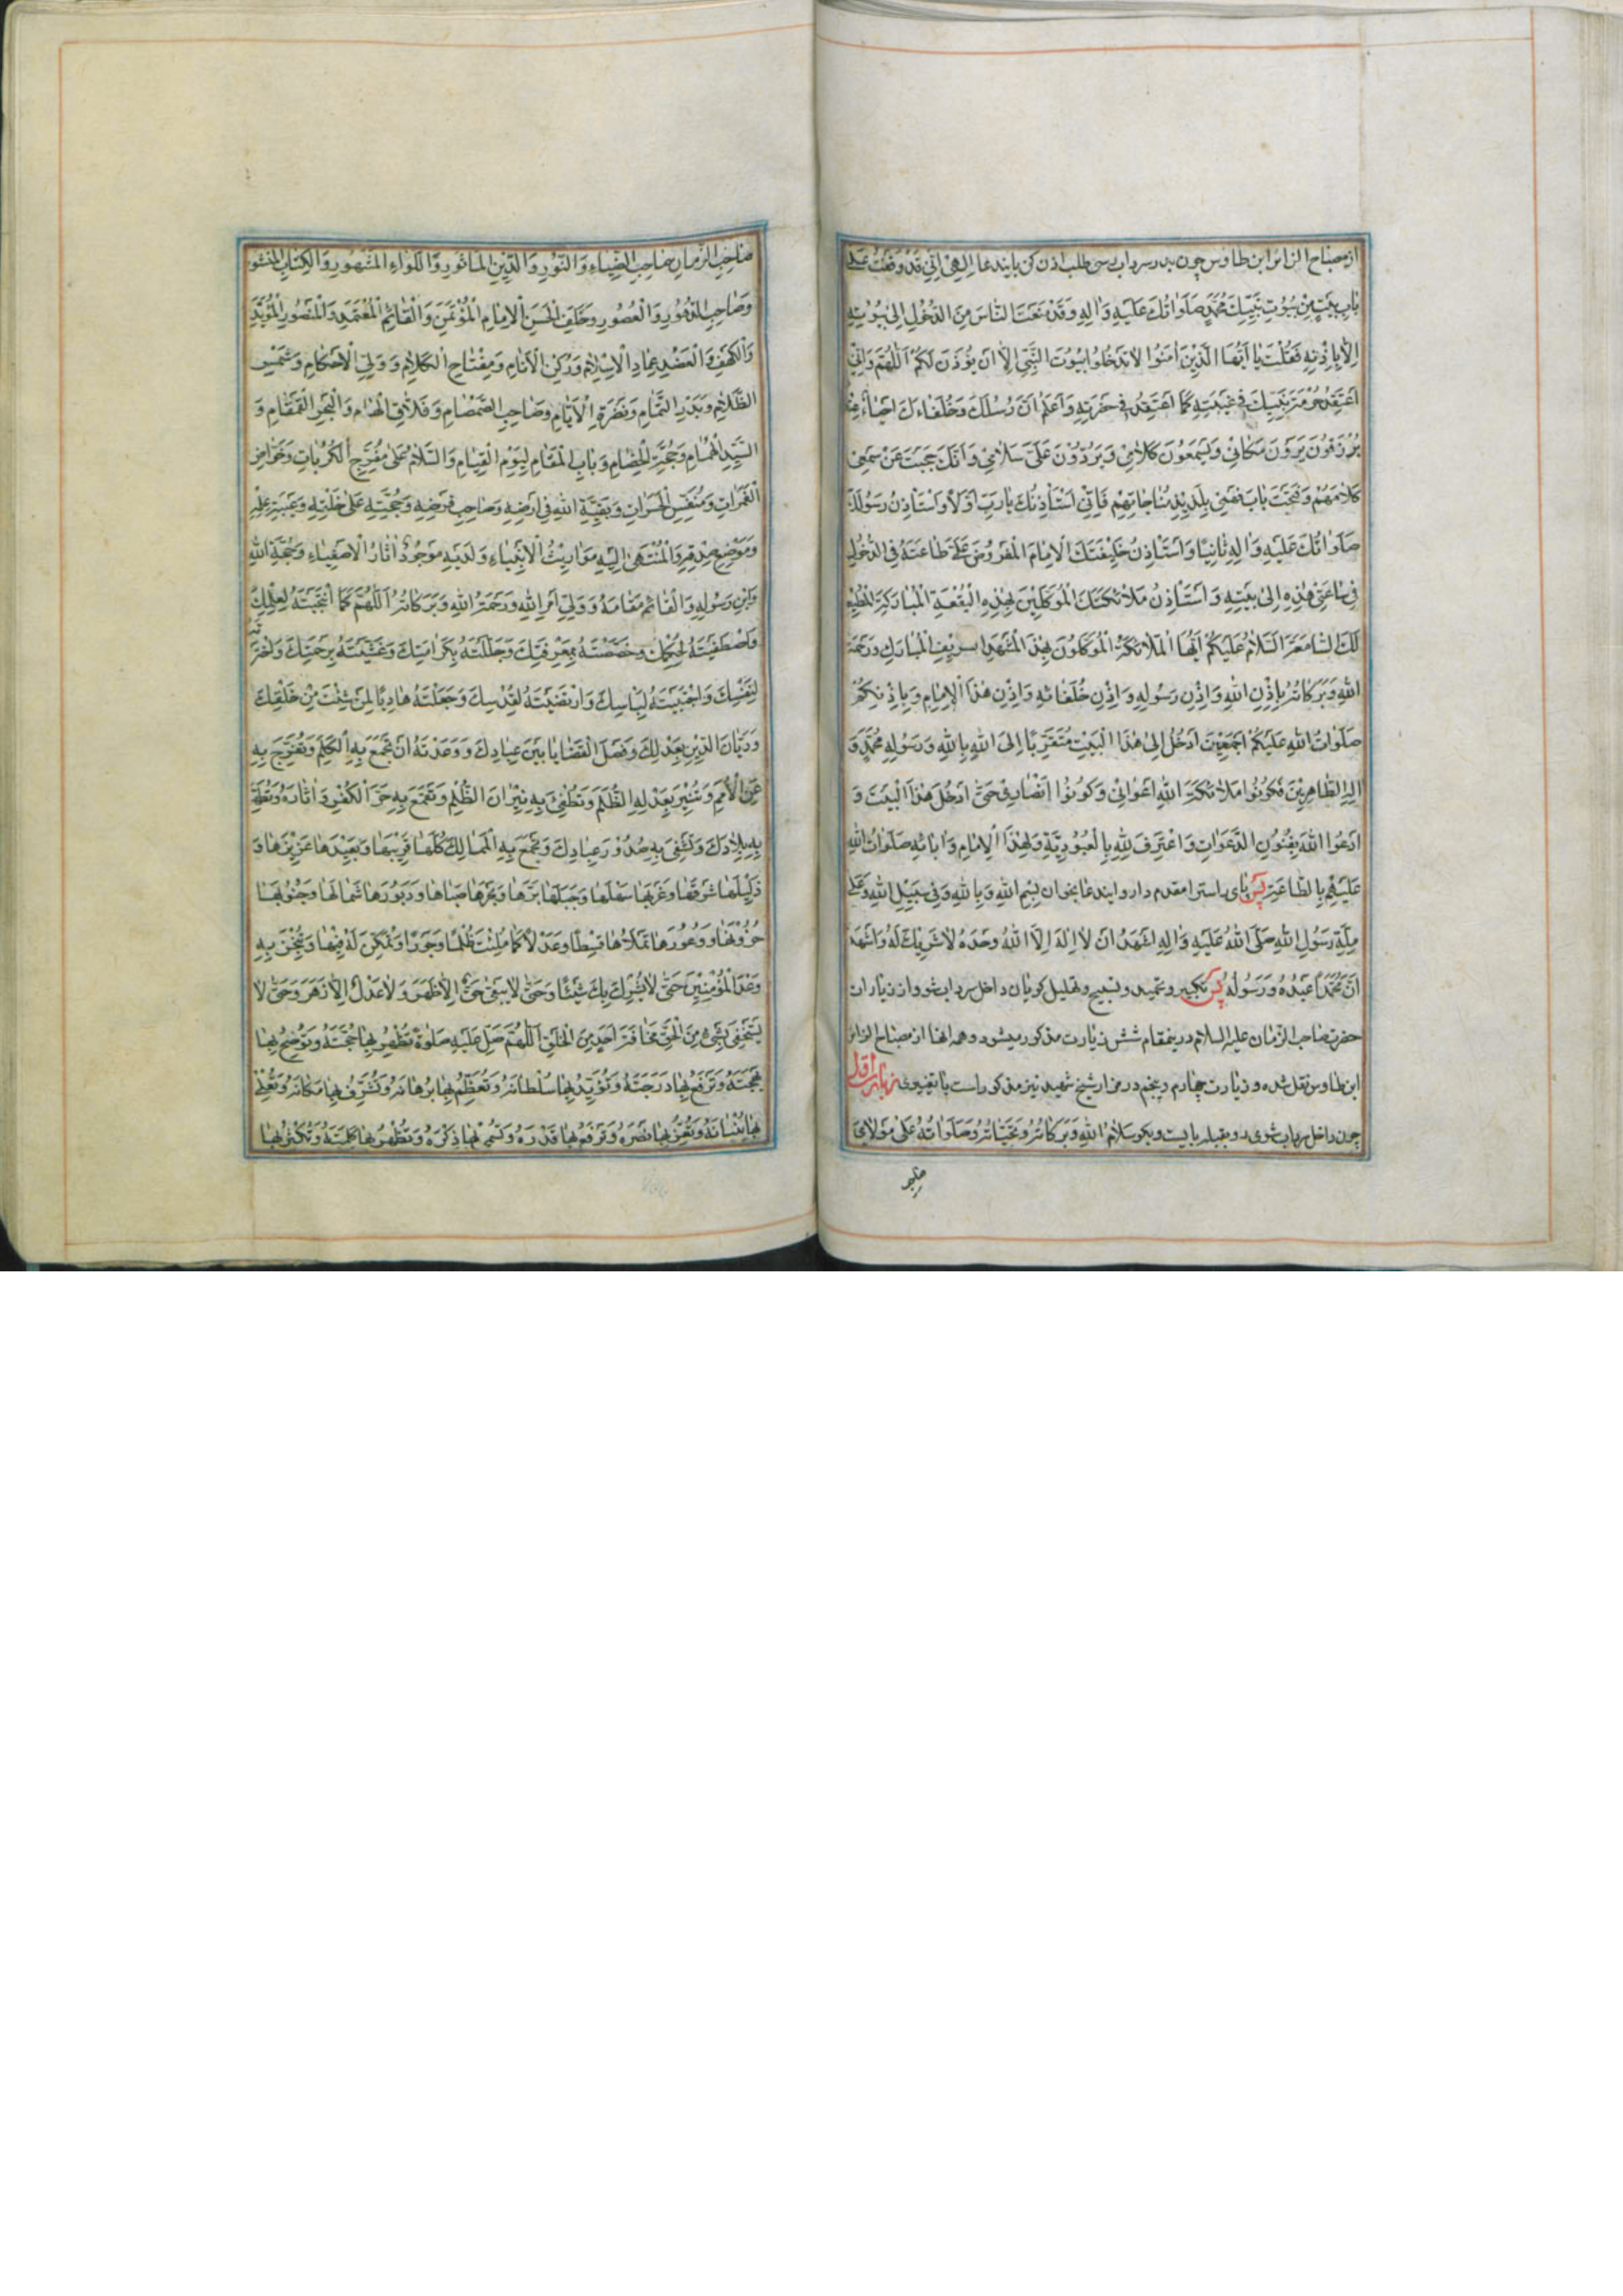 از مصباح الزائر ابن طاوس چون بدر سرداب برسی طلب اذن کن باین دعا اِلهی اِنّی قَدْ وَقَفْتُ عَلی
بابِ بَیْتٍ مِنْ بُیُوتِ نَبِیِّكَ مُحَمَّدٍ صَلَواتُكَ عَلَیْهِ وَالِهِ وَقَدْ مَنَعْتَ النّاسَ مِنَ الدُّخُولِ اِلی بُیُوتِهِ
اِلاّ بِاِذْنِهِ فَقُلْتَ یا اَیُّهَا الَّذینَ امَنُوا لا تَدْخُلُوا بُیُوتَ النَّبِیِّ اِلاّ اَنْ یُؤْذَنَ لَكُمْ اَللّهُمَّ وَاِنّی
اَعْتَقِدُ حُرْمَةَ نَبِیِّكَ فی غَیْبَتِهِ كَما اَعْتَقِدُ فی حَضْرَتِهِ وَاَعْلَمُ اَنَّ رُسُلَكَ وَخُلَفاءَكَ اَحْیاءٌ
یُرْزَقُونَ یَرَوْنَ مَكانی وَیَسْمَعُونَ كَلامی وَیَرُدُّونَ عَلَیَّ سَلامی وَاَنَّكَ حَجَبْتَ عَنْ سَمْعی
كَلامَهُمْ وَفَتَحْتَ بابَ فَهْمی بِلَذیذِ مُناجاتِهِمْ فَاِنّی اَسْتَأْذِنُكَ یا رَبِّ اَوَّلاً وَاَسْتَأْذِنُ رَسُولَكَ
صَلَواتُكَ عَلَیْهِ وَالِهِ ثانِیًا وَاَسْتَأْذِنُ خَلیفَتَكَ الْاِمامَ الْمَفْرُوضَ عَلَیَّ طاعَتَهُ فِی الدُّخُولِ
فی ساعَتی هٰذِهِ اِلی بَیْتِهِ وَاَسْتَأْذِنُ مَلائِكَتَكَ الْمُوَكَّلینَ بِهٰذِهِ الْبُقْعَةِ الْمُبارَكَةِ الْمُطیعَةِ
لَكَ السّامِعَةَ اَلسَّلامُ عَلَیْكُمْ اَیُّهَا الْمَلائِكَةُ الْمُوَكَّلُونَ بِهٰذَا الْمَشْهَدِ الشریفِ الْمُبارَكِ وَرَحْمَةُ
اللهِ وَبَرَكاتُهُ بِاِذْنِ اللهِ وَاِذْنِ رَسُولِهِ وَاِذْنِ خُلَفائِهِ وَاِذْنِ هٰذَا الْاِمامِ وَبِاِذْنِكُمْ
صَلَواتُ اللهِ عَلَیْكُمْ اَجْمَعینَ اَدْخُلُ اِلی هٰذَا الْبَیْتِ مُتَقَرِّبًا اِلَی اللهِ بِاللهِ وَرَسُولِهِ مُحَمَّدٍ وَ
الِهِ الطّاهِرینَ فَكُونُوا مَلائِكَةَ اللهِ اَعْوانی وَكُونُوا اَنْصاری حَتّی اَدْخُلَ هٰذَا الْبَیْتَ وَ
اَدْعُوَا اللهَ بِفُنُونِ الدَّعَواتِ وَاَعْتَرِفَ لِلّهِ بِالْعُبُودِیَّةِ وَلِهٰذَا الْاِمامِ وَابائِهِ صَلَواتُ اللهِ
عَلَیْهِمْ بِالطّاعَةِ پس پای راسترا مقدم دار و ایندعا بخوان بِسْمِ اللهِ وَبِاللهِ وَفی سَبیلِ اللهِ وَعَلی
مِلَّةِ رَسُولِ اللهِ صَلَّی اللهُ عَلَیْهِ وَالِهِ اَشْهَدُ اَنْ لا اِلهَ اِلاَّ اللهُ وَحْدَهُ لا شَریكَ لَهُ وَاَشْهَدُ
اَنَّ مُحَمَّدًا عَبْدُهُ وَرَسُولُهُ پس تکبیر و تحمید و تسبیح و تهلیل کویان داخل سرداب شو و از زیارات
حضرت صاحب الزمان علیه السلام درینمقام شش زیارت مذکور میشود و همه انها از مصباح الزائر
ابن طاوس نقل شده و زیارت چهارم و پنجم در مزار شیخ شهید نیز مذکور است با تغییری زیارت اول
چون داخل سرداب شوی رو بقبله بایست و بکو سَلامُ اللهِ وَبَرَكاتُهُ وَتَحِیّاتُهُ وَصَلَواتُهُ عَلی مَوْلایَ
صاحب
صاحِبِ الزَّمانِ صاحِبِ الضِّیاءِ وَالنُّورِ وَالدّینِ الْمَأْثُورِ وَاللِّواءِ الْمَشْهُورِ وَالْكِتابِ الْمَنْشُورِ
وَصاحِبِ الدُّهُورِ وَالْعُصُورِ وَخَلَفِ الْحَسَنِ الْاِمامِ الْمُؤْتَمَنِ وَالْقائِمِ الْمُعْتَمَدِ وَالْمَنْصُورِ الْمُؤَیَّدِ
وَالْكَهْفِ وَالْعَضُدِ عِمادِ الْاِسْلامِ وَرُكْنِ الْاَنامِ وَمِفْتاحِ الْكَلامِ وَوَلِیِّ الْاَحْكامِ وَشَمْسِ
الظَّلامِ وَبَدْرِ التَّمامِ وَنَضْرَةِ الْاَیّامِ وَصاحِبِ الصَّمْصامِ وَفَلاّقِ الْهامِ وَالْبَحْرِ الْقَمْقامِ وَ
السَّیِّدِ الْهُمامِ وَحُجَّةِ الْخِصامِ وَبابِ الْمَقامِ لِیَوْمِ الْقِیامِ وَالسَّلامُ عَلی مُفَرِّجِ الْكُرُباتِ وَخَوّاضِ
الْغَمَراتِ وَمُنَفِّسِ الْحَسَراتِ وَبَقِیَّةِ اللهِ فی اَرْضِهِ وَصاحِبِ فَرْضِهِ وَحُجَّتِهِ عَلی خَلْقِهِ وَعَیْبَةِ عِلْمِهِ
وَمَوْضِعِ صِدْقِهِ وَالْمُنْتَهی اِلَیْهِ مَواریثُ الْاَنْبِیاءِ وَلَدَیْهِ مَوْجُودٌ اثارُ الْاَصْفِیاءِ وَحُجَّةِ اللهِ
وَابْنِ رَسُولِهِ وَالْقائِمِ مَقامَهُ وَوَلِیِّ اَمْرِ اللهِ وَرَحْمَةُ اللهِ وَبَرَكاتُهُ اَللّهُمَّ كَمَا انْتَجَبْتَهُ لِعِلْمِكَ
وَاصْطَفَیْتَهُ لِحُكْمِكَ وَخَصَصْتَهُ بِمَعْرِفَتِكَ وَجَلَّلْتَهُ بِكَرامَتِكَ وَغَشَّیْتَهُ بِرَحْمَتِكَ وَاخْتَرْتَهُ
لِنَفْسِكَ وَاجْتَبَیْتَهُ لِبَأْسِكَ وَارْتَضَیْتَهُ لِقُدْسِكَ وَجَعَلْتَهُ هادِیًا لِمَنْ شِئْتَ مِنْ خَلْقِكَ
وَدَیّانَ الدّینِ بِعَدْلِكَ وَفَصْلَ الْقَضایا بَیْنَ عِبادِكَ وَوَعَدْتَهُ اَنْ تَجْمَعَ بِهِ الْكَلِمَ وَتُفَرِّجَ بِهِ
عَنِ الْاُمَمِ وَتُنیرَ بِعَدْلِهِ الظُّلَمَ وَتُطْفِئَ بِهِ نیرانَ الظُّلْمِ وَتَقْمَعَ بِهِ حَرَّ الْكُفْرِ وَاثارَهُ وَتُطَهِّرَ
بِهِ بِلادَكَ وَتَشْفِیَ بِهِ صُدُورَ عِبادِكَ وَتَجْمَعَ بِهِ الْمَمالِكَ كُلَّها قَریبَها وَبَعیدَها عَزیزَها وَ
ذَلیلَها شَرْقَها وَغَرْبَها سَهْلَها وَجَبَلَها بَرَّها وَبَحْرَها صَباها وَدَبُورَها شَمالَها وَجَنُوبَها
حُزُونَها وَوُعُورَها تَمْلَاُها قِسْطًا وَعَدْلاً كَما مُلِئَتْ ظُلْمًا وَجَوْرًا وَتُمَكِّنَ لَهُ فیها وَتُنْجِزَ بِهِ
وَعْدَ الْمُؤْمِنینَ حَتّی لا یُشْرِكَ بِكَ شَیْئًا وَحَتّی لا یَبْقی حَقٌّ اِلاّ ظَهَرَ وَلا عَدْلٌ اِلاّ زَهَرَ وَحَتّی لا
یَسْتَخْفِیَ بِشَیْءٍ مِنَ الْحَقِّ مَخافَةَ اَحَدٍ مِنَ الْخَلْقِ اَللّهُمَّ صَلِّ عَلَیْهِ صَلوةً تُظْهِرُ بِها حُجَّتَهُ وَتُوضِحُ بِها
بَهْجَتَهُ وَتَرْفَعُ بِها دَرَجَتَهُ وَتُؤَیِّدُ بِها سُلْطانَهُ وَتُعَظِّمُ بِها بُرْهانَهُ وَتُشَرِّفُ بِها مَكانَهُ وَتُعْلی
بِها بُنْیانَهُ وَتُعِزُّ بِها نَصْرَهُ وَتَرْفَعُ بِها قَدْرَهُ وَتُسْمی بِها ذِكْرَهُ وَتُظْهِرُ بِها كَلِمَتَهُ وَتُكْثِرُ بِها